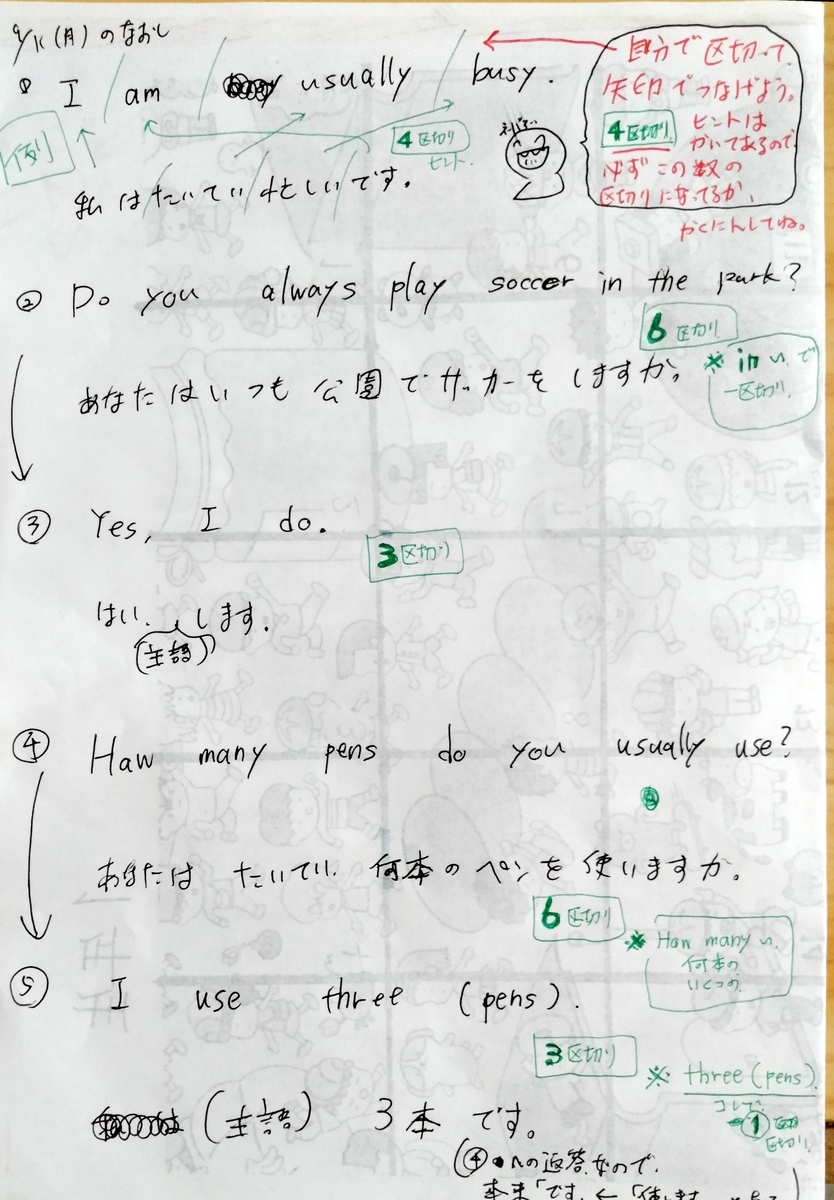 (月)のなおし
I am usually busy.
自分で区切って
矢印でつなげよう。
4区切り ヒントは
かいてあるので
必ずこの数の
区切りになってるか、
かくにんしてね。
例
4区切り
ヒント.
私はたいてい忙しいです。
② Do you always play soccer in the park?
6区切り
※ in ~ で
一区切り
あなたはいつも公園でサッカーをしますか。
③ Yes, I do.
3区切り
はい、します。
(主語)
④ Haw many pens do you usually use?
あなたは たいてい 何本のペンを使いますか。
6区切り
※ Haw many ~
何本の
いくつの
⑤ I use three (pens).
3区切り
※ three (pens)
コレで
①
区切り
(主語) 3本です。
④への返答なので、
本来「です」←「使います